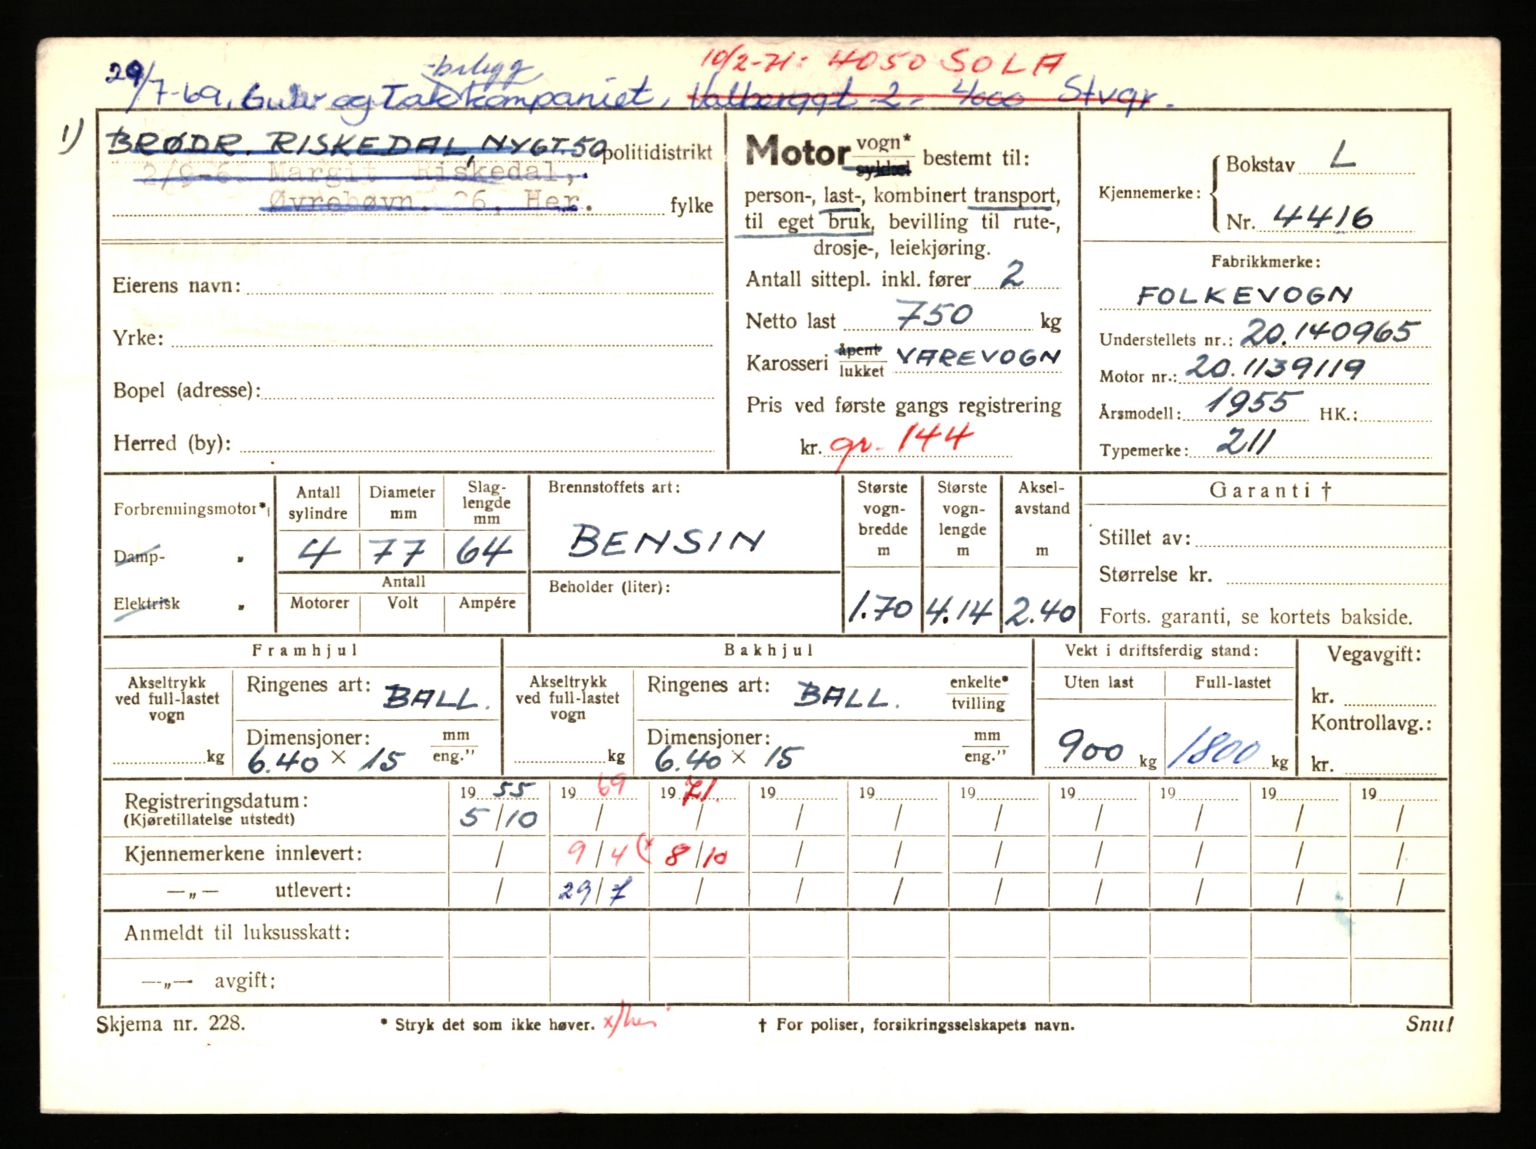 10/2-71: 4050 SOLA
-belegg
29/7-69. Gulv og Takkompaniet, Valberggt 2. 4000 Stvgr.
1) BRØDR. RISKEDAL, NYGT. 50 politidistrikt
Margit Riskedal,
Øvrehavn. 26, Her. fylke
Eierens navn:
Yrke:
Bopel (adresse):
Herred (by):
Motor vogn* sykkel bestemt til:
person-, last-, kombinert transport,
til eget bruk, bevilling til rute-,
drosje-, leiekjøring.
Antall sittepl. inkl. fører 2
Netto last 750 kg
Karosseri åpent lukket VAREVOGN
Pris ved første gangs registrering
kr. gr. 144
Kjennemerke: Bokstav L
Nr. 4416
Fabrikkmerke:
FOLKEVOGN
Understellets nr.: 20.140965
Motor nr.: 20.1139119
Årsmodell: 1955 HK.:
Typemerke: 211
Forbrenningsmotor*
Damp- "
Elektrisk "
Antall sylindre 4
Diameter mm 77
Slag-lengde mm 64
Antall
Motorer Volt Ampére
Brennstoffets art:
BENSIN
Beholder (liter):
Største vogn-bredde m 1.70
Største vogn-lengde m 4.14
Aksel-avstand m 2.40
Garanti †
Stillet av:
Størrelse kr.
Forts. garanti, se kortets bakside.
Framhjul
Akseltrykk ved full-lastet vogn kg
Ringenes art: BALL.
Dimensjoner: mm eng."
6.40 × 15
Bakhjul
Akseltrykk ved full-lastet vogn kg
Ringenes art: BALL. enkelte* tvilling
Dimensjoner: mm eng."
6.40 × 15
Vekt i driftsferdig stand:
Uten last Full-lastet
900 kg 1800 kg
Vegavgift:
kr.
Kontrollavg.:
kr.
19 55 19 69 19 71. 19 19 19 19 19 19 19
Registreringsdatum: 5/10 / / / / / / / / /
(Kjøretillatelse utstedt)
Kjennemerkene innlevert: / 9/4 (x 8/10 / / / / / / /
—„— utlevert: / 29/7 / / / / / / / /
Anmeldt til luksusskatt:
—„— avgift:
Skjema nr. 228.
* Stryk det som ikke høver.
† For poliser, forsikringsselskapets navn.
Snu!